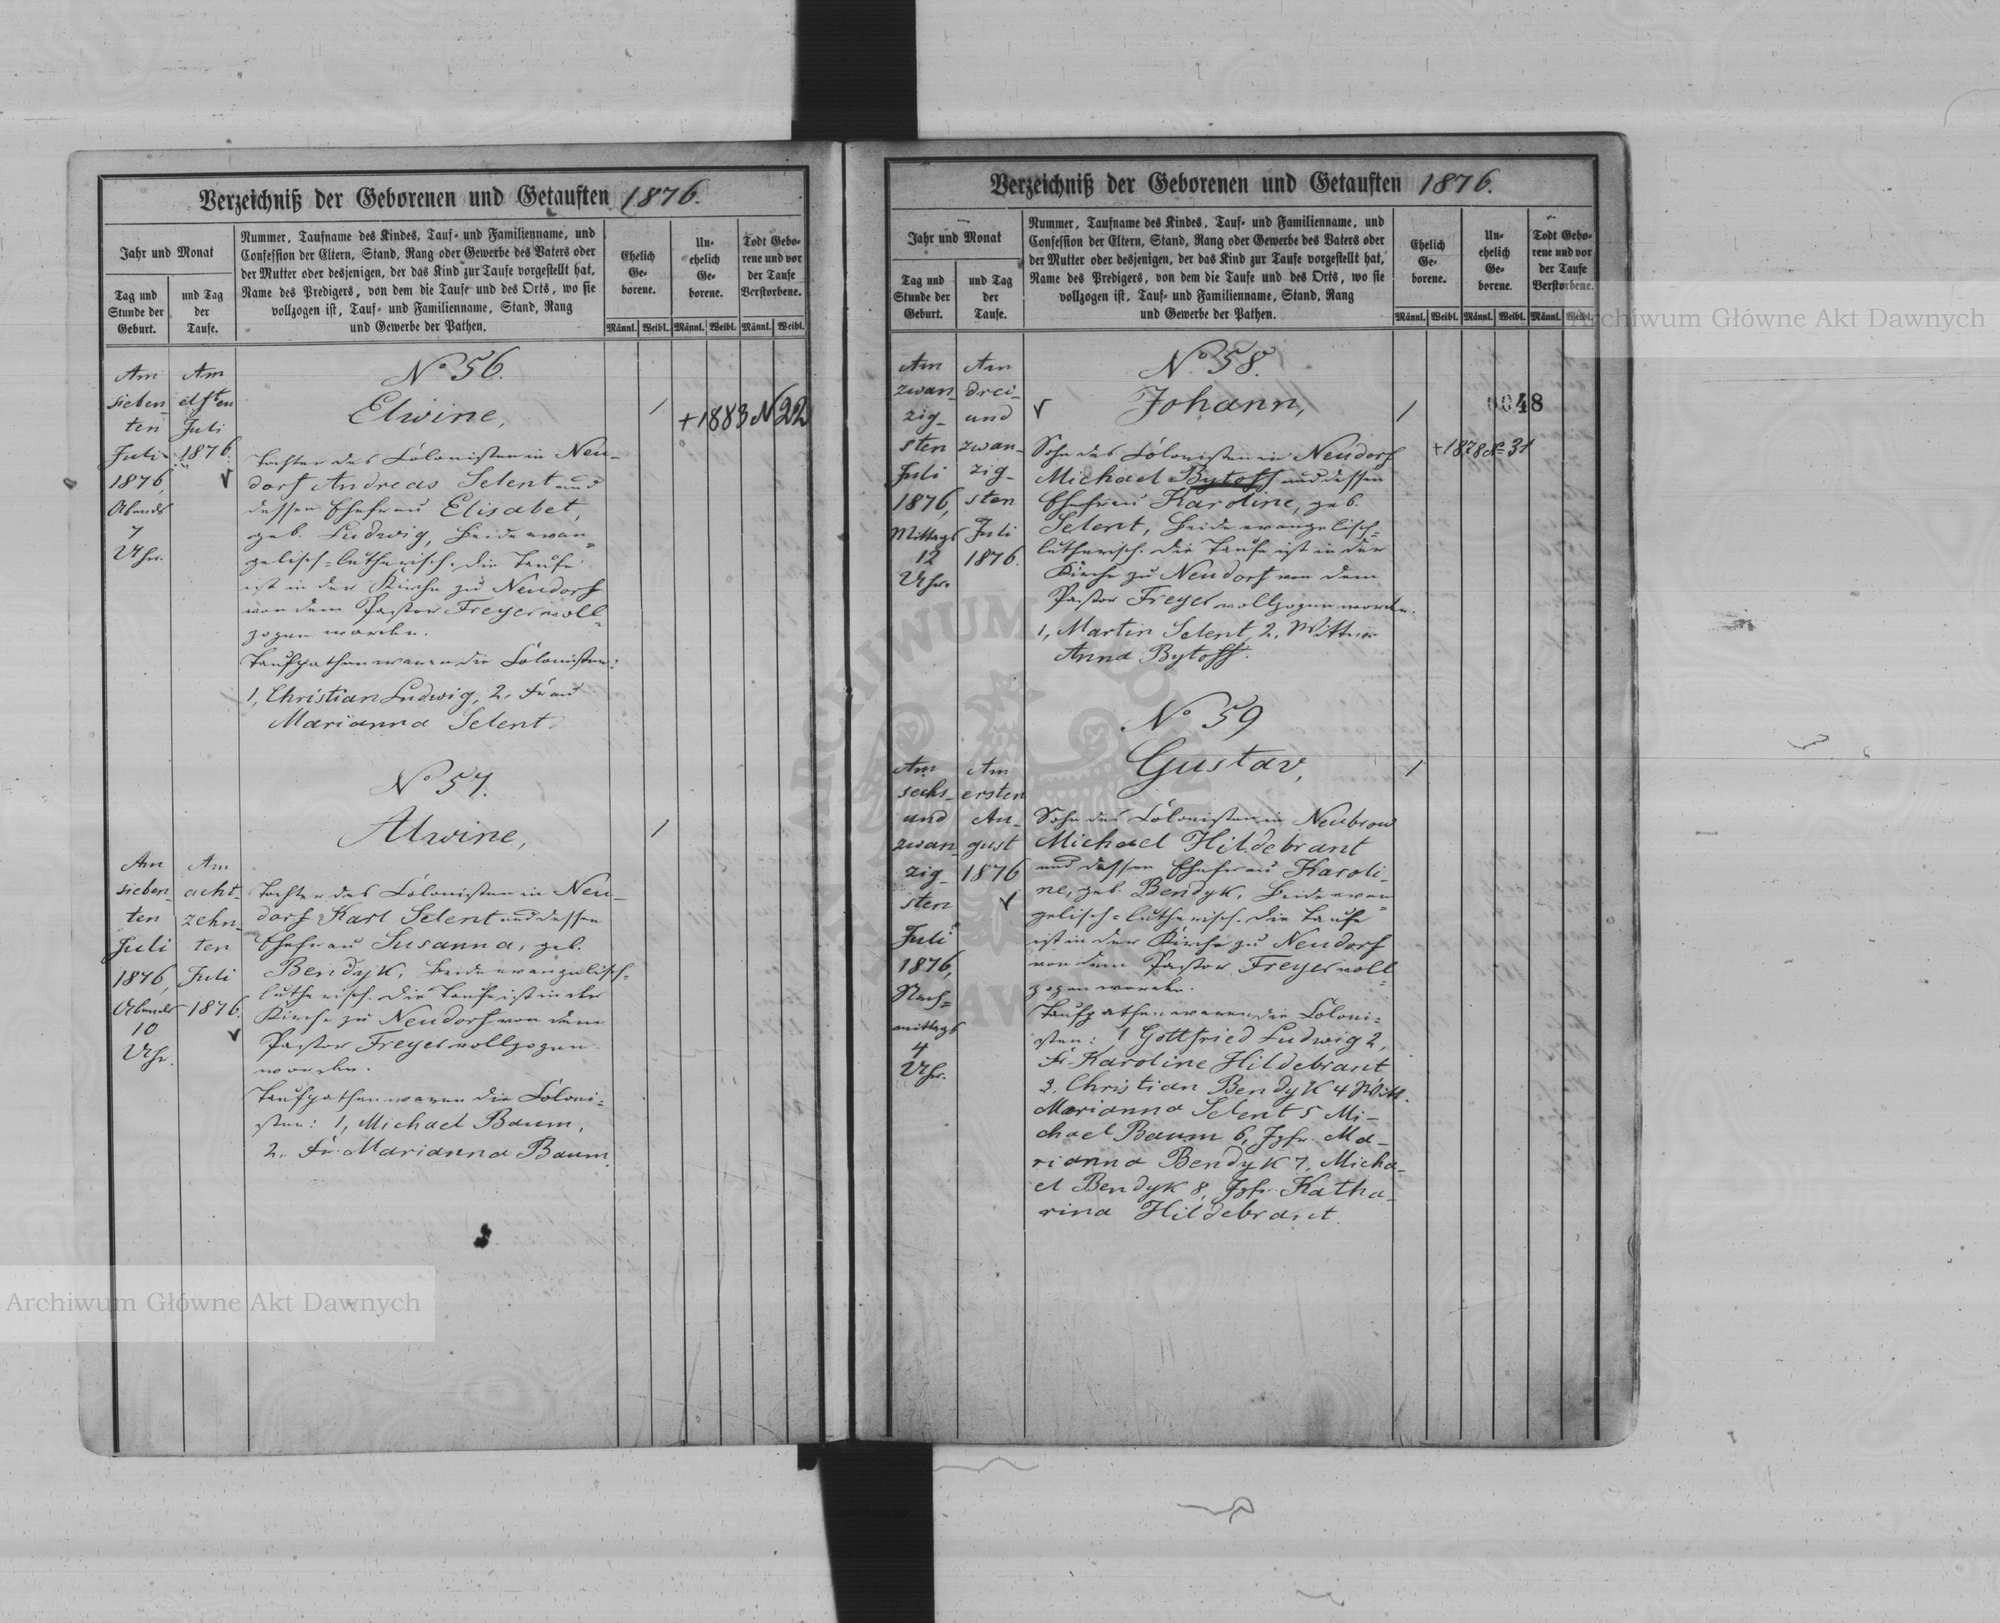 Verzeichniß der Geborenen und Getauften 1876.
Jahr und Monat
Tag und
Stunde der
Geburt.
und Tag
der
Taufe.
Nummer, Taufname des Kindes, Tauf- und Familienname, und
Confession der Eltern, Stand, Rang oder Gewerbe des Vaters oder
der Mutter oder desjenigen, der das Kind zur Taufe vorgestellt hat,
Name des Predigers, von dem die Taufe und des Orts, wo sie
vollzogen ist, Tauf- und Familienname, Stand, Rang
und Gewerbe der Pathen.
Ehelich
Ge-
borene.
Un-
ehelich
Ge-
borene.
Todt Gebo-
rene und vor
der Taufe
Verstorbene.
Männl. Weibl. Männl. Weibl. Männl. Weibl.
Am
sieben-
ten
Juli
1876,
Abends
7
Uhr.
Am
elften
Juli
1876.
No 56.
Elwine,
Tochter des Colonisten in Neu-
dorf Andreas Selent und
dessen Ehefrau Elisabet,
geb. Ludwig, Beide evan-
gelisch-lutherisch. Die Taufe
ist in der Kirche zu Neudorf
von dem Pastor Freyer voll-
zogen worden.
Taufpathen waren die Colonisten:
1, Christian Ludwig, 2. Frau
Marianna Selent.
1
+1883 N 22
Am
sieben-
ten
Juli
1876,
Abends
10
Uhr.
Am
acht-
zehn-
ten
Juli
1876.
No 57.
Alwine,
Tochter des Colonisten in Neu-
dorf Karl Selent und dessen
Ehefrau Susanna, geb.
Bendyk, Beide evangelisch-
lutherisch. Die Taufe ist in der
Kirche zu Neudorf von dem
Pastor Freyer vollzogen
worden.
Taufpathen waren die Coloni-
sten: 1, Michael Baum,
2. Fr. Marianna Baum.
1
Verzeichniß der Geborenen und Getauften 1876.
Jahr und Monat
Tag und
Stunde der
Geburt.
und Tag
der
Taufe.
Nummer, Taufname des Kindes, Tauf- und Familienname, und
Confession der Eltern, Stand, Rang oder Gewerbe des Vaters oder
der Mutter oder desjenigen, der das Kind zur Taufe vorgestellt hat,
Name des Predigers, von dem die Taufe und des Orts, wo sie
vollzogen ist, Tauf- und Familienname, Stand, Rang
und Gewerbe der Pathen.
Ehelich
Ge-
borene.
Un-
ehelich
Ge-
borene.
Todt Gebo-
rene und vor
der Taufe
Verstorbene.
Männl. Weibl. Männl. Weibl. Männl. Weibl.
Am
zwan-
zig-
sten
Juli
1876,
Mittags
12
Uhr.
Am
drei-
und
zwan-
zig-
sten
Juli
1876.
No 58.
Johann,
Sohn des Colonisten in Neudorf
Michael Bytoff und dessen
Ehefrau Karoline, geb.
Selent, Beide evangelisch-
lutherisch. Die Taufe ist in der
Kirche zu Neudorf von dem
Pastor Freyer vollzogen worden.
1, Martin Selent, 2, Wittwe
Anna Bytoff.
1
0048
+1878 No 31
Am
sechs-
und
zwan-
zig-
sten
Juli
1876,
Nach-
mittags
4
Uhr.
Am
ersten
Au-
gust
1876
No 59
Gustav,
Sohn des Colonisten in Neubrow
Michael Hildebrant
und dessen Ehefrau Karoli-
ne, geb. Bendyk, Beide evan-
gelisch-lutherisch. Die Taufe
ist in der Kirche zu Neudorf
von dem Pastor Freyer voll-
zogen worden.
Taufpathen waren die Coloni-
sten: 1 Gottfried Ludwig 2,
Fr. Karoline Hildebrant
3, Christian Bendyk 4 Wittw.
Marianna Selent 5 Mi-
chael Baum 6, Jgfr. Ma-
rianna Bendyk 7, Micha-
el Bendyk 8, Jgfr. Katha-
rina Hildebrant.
1
Archiwum Główne Akt Dawnych
Archiwum Główne Akt Dawnych